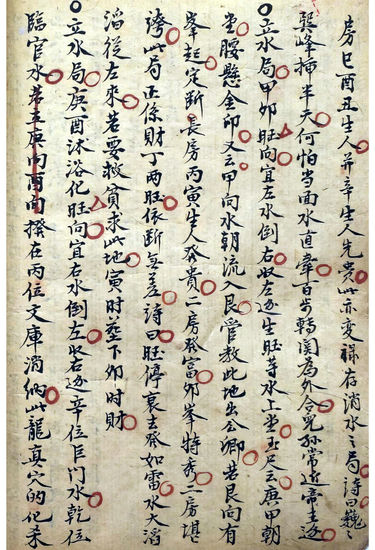 房巳酉丑生人並辛生人先貴此亦変祿存消水之局詩曰巍之
巽峰揷半天何怕当面水直牽百步轉関為外合兒孫常近帝王邊
立水局甲卯旺向宜左水倒右收左邊生旺等水上堂玉尺云庚甲朝
堂腰懸金印又云甲向水朝流入艮管教此地出公卿若艮向有
峯起定断長房丙寅生人發貴二房發富卯峯特秀一房堪
誇此局正係財丁兩旺依断無差詩曰旺停衰去發如雷水大滔
滔從左來若要救貧求此地寅时塟下卯时財
立水局庚酉沐浴化旺向宜右水倒左收右邊辛位巨門水乾位
臨官水若立庚向酉向撥在丙位文庫消納此龍真穴的化杀